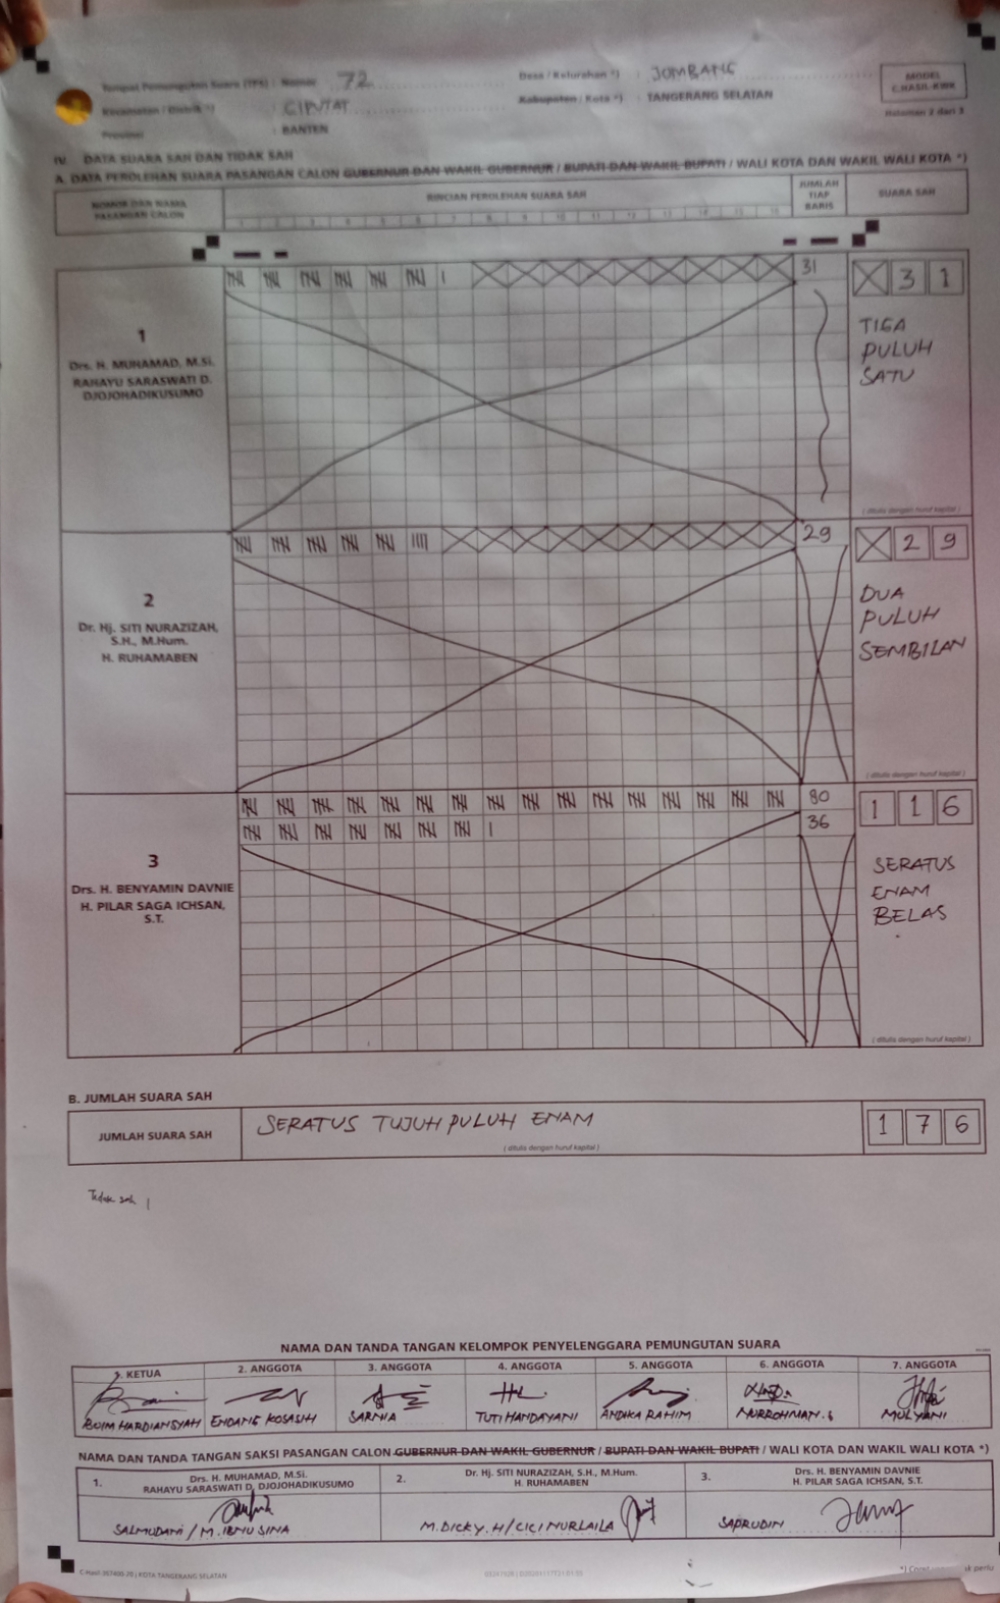 Tempat Pemungutan Suara (TPS) : Nomor : 72
Desa / Kelurahan *) : JOMBANG
MODEL
C.HASIL-KWK
Kecamatan / Distrik *) : CIPUTAT
Kabupaten / Kota *) : TANGERANG SELATAN
Halaman 2 dari 3
Provinsi : BANTEN
IV. DATA SUARA SAH DAN TIDAK SAH
A. DATA PEROLEHAN SUARA PASANGAN CALON GUBERNUR DAN WAKIL GUBERNUR / BUPATI DAN WAKIL BUPATI / WALI KOTA DAN WAKIL WALI KOTA *)
NOMOR DAN NAMA
PASANGAN CALON
RINCIAN PEROLEHAN SUARA SAH
JUMLAH
TIAP
BARIS
SUARA SAH
1 2 3 4 5 6 7 8 9 10 11 12 13 14 15 16
1
Drs. H. MUHAMAD, M.Si.
RAHAYU SARASWATI D.
DJOJOHADIKUSUMO
31
X 3 1
TIGA
PULUH
SATU
( ditulis dengan huruf kapital )
2
Dr. Hj. SITI NURAZIZAH,
S.H., M.Hum.
H. RUHAMABEN
29
X 2 9
DUA
PULUH
SEMBILAN
( ditulis dengan huruf kapital )
3
Drs. H. BENYAMIN DAVNIE
H. PILAR SAGA ICHSAN,
S.T.
80
36
1 1 6
SERATUS
ENAM
BELAS
( ditulis dengan huruf kapital )
B. JUMLAH SUARA SAH
JUMLAH SUARA SAH
SERATUS TUJUH PULUH ENAM
( ditulis dengan huruf kapital )
1 7 6
Tidak sah 1
NAMA DAN TANDA TANGAN KELOMPOK PENYELENGGARA PEMUNGUTAN SUARA
1. KETUA 2. ANGGOTA 3. ANGGOTA 4. ANGGOTA 5. ANGGOTA 6. ANGGOTA 7. ANGGOTA
BOIM HARDIANSYAH ENDANG KOSASIH SARNIA TUTI HANDAYANI ANDIKA RAHIM NURROHMAN.S MULYANI
NAMA DAN TANDA TANGAN SAKSI PASANGAN CALON GUBERNUR DAN WAKIL GUBERNUR / BUPATI DAN WAKIL BUPATI / WALI KOTA DAN WAKIL WALI KOTA *)
1. Drs. H. MUHAMAD, M.Si.
RAHAYU SARASWATI D. DJOJOHADIKUSUMO
2. Dr. Hj. SITI NURAZIZAH, S.H., M.Hum.
H. RUHAMABEN
3. Drs. H. BENYAMIN DAVNIE
H. PILAR SAGA ICHSAN, S.T.
SALMUDANI / M. IBNU SINA
M. DICKY. H / CICI NURLAILA
SAPRUDIN
KOTA TANGERANG SELATAN